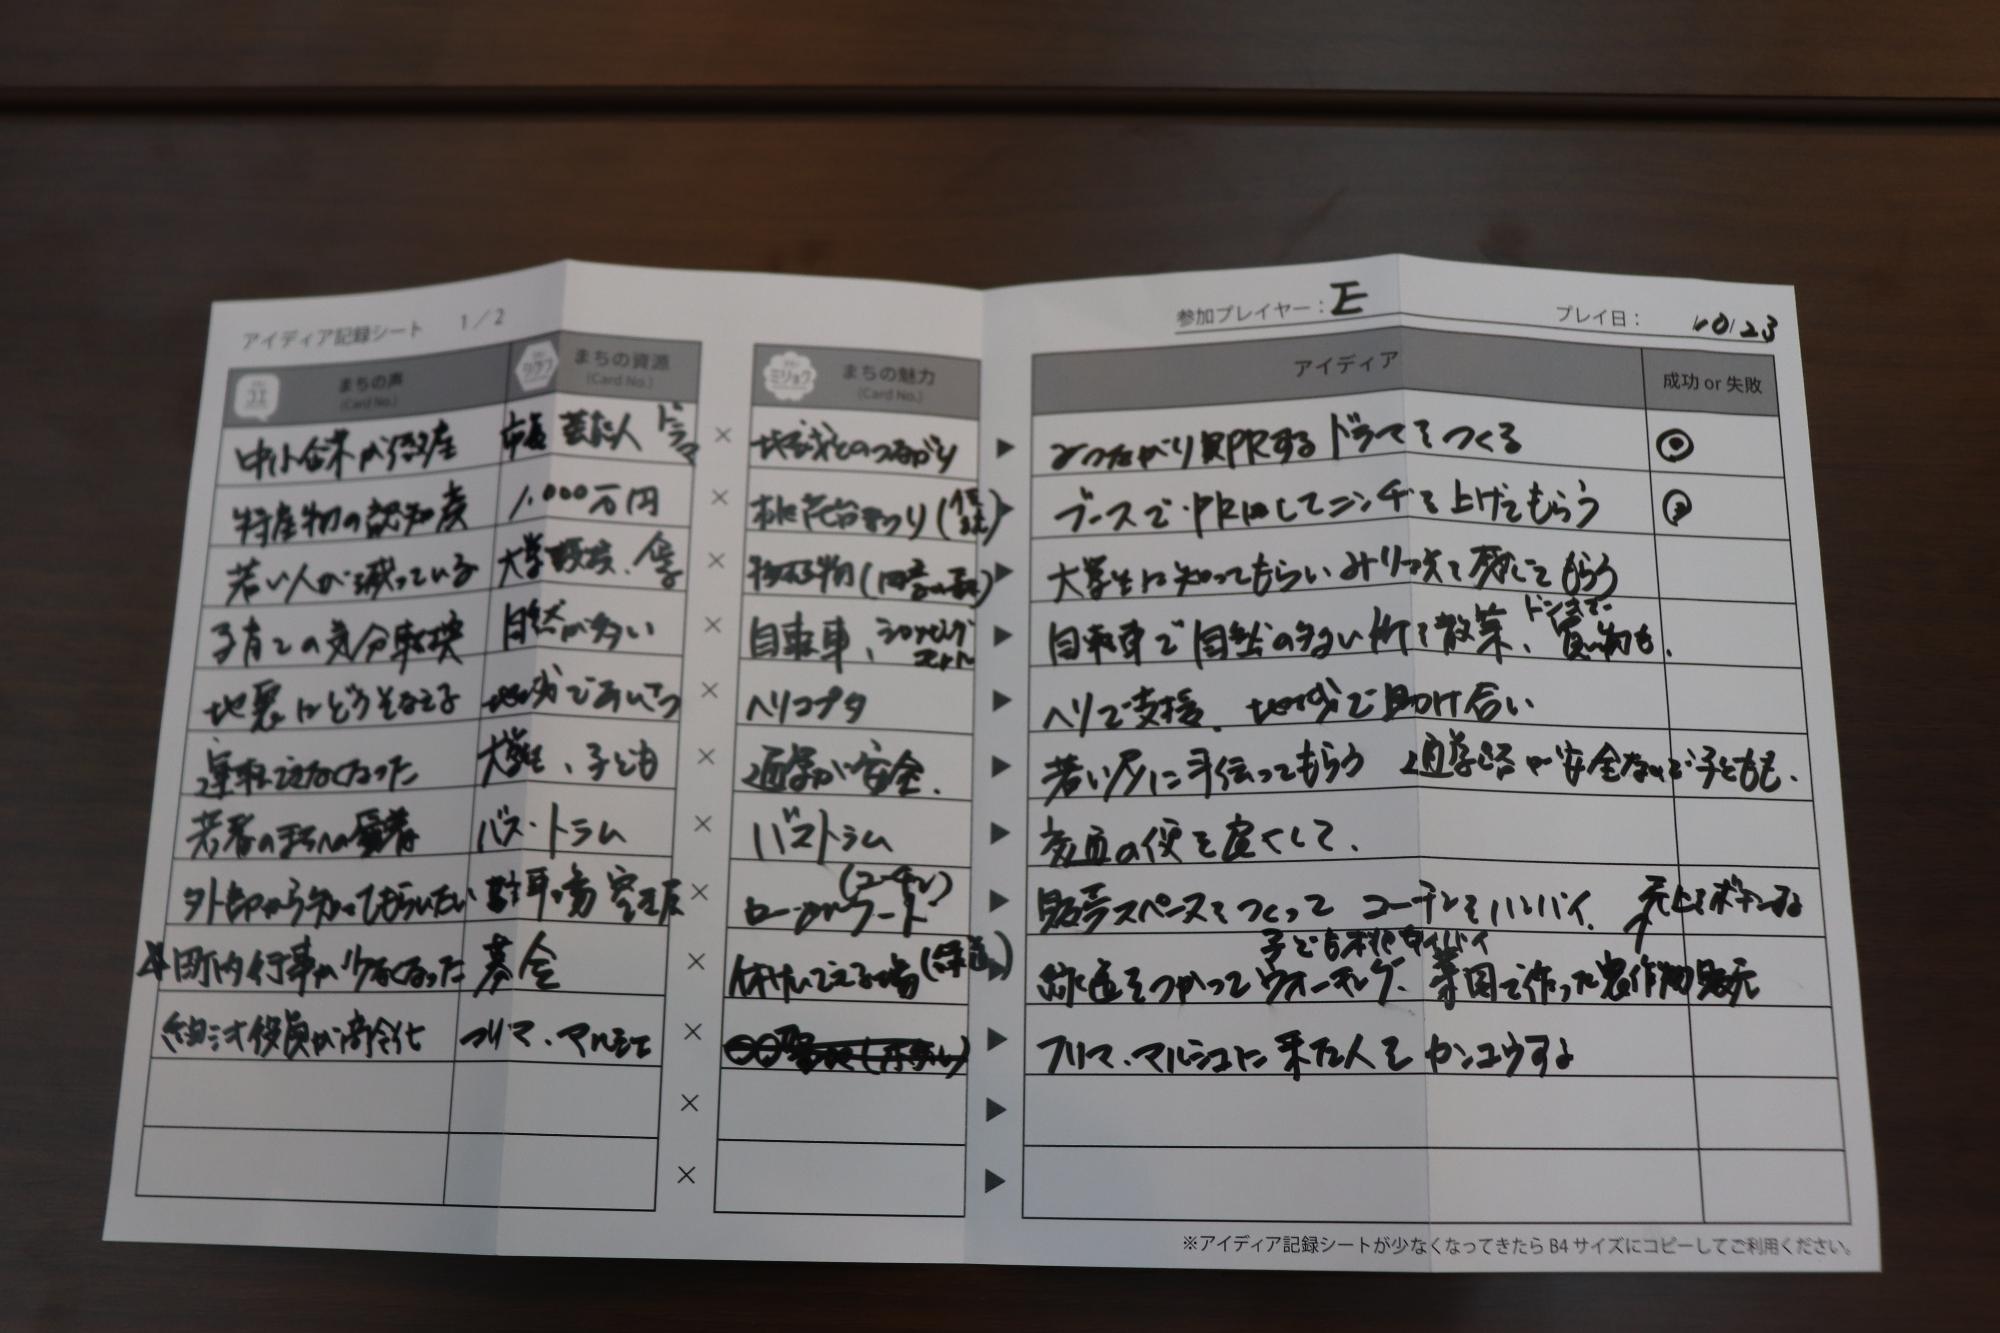 アイディア記録シート 1/2 参加プレイヤー：E プレイ日： 10/23
まちの声 (Card No.) まちの資源 (Card No.) まちの魅力 (Card No.) アイディア 成功 or 失敗
コエ ミリョク
中小企業が 市長 芸能人 ドラマ × 地域とのつながり ▶ PRするドラマをつくる ◎
特産物の認知度 1,000万円 × 桃花台まつり ▶ ブースでPRしてニンチを上げてもらう
若い人が減っている 大学 × ▶ 大学生に知ってもらいみりょくを感じてもらう
子育ての気分転換 自然が多い × 自転車、ショッピング ▶ 自転車で自然の多い所を散策、買い物も.
地震にどうそなえる 地域であいさつ × ヘリコプタ ▶ ヘリで支援、地域で助け合い
運転できなくなった 大学生、子ども × 通学が安全. ▶ 若い人に手伝ってもらう 通学路が安全なので子どもも.
若者のまちへの愛着 バス・トラム × バストラム ▶ 交通の便を良くして.
外部から知ってもらいたい × (コーチン) ローカルフード ▶ 販売スペースをつくって コーチンをハンバイ.
町内行事が少なくなった 基金 × (緑道) ▶ 緑道をつかってウォーキング、菜園で作った農作物販売
役員が高齢化 フリマ、マルシェ × ▶ フリマ・マルシェに来た人をカンユウする
× ▶
× ▶
※アイディア記録シートが少なくなってきたら B4 サイズにコピーしてご利用ください。